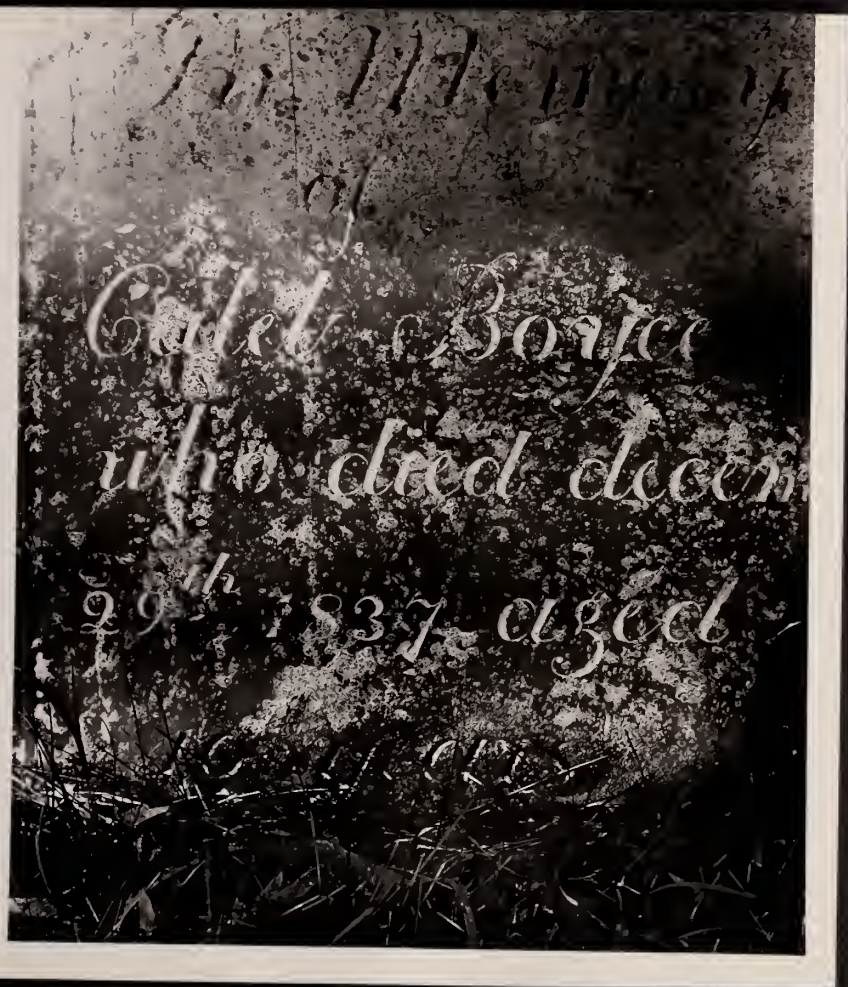 In Memory
of
Caleb Boyce
who died decem
29th 1837 aged